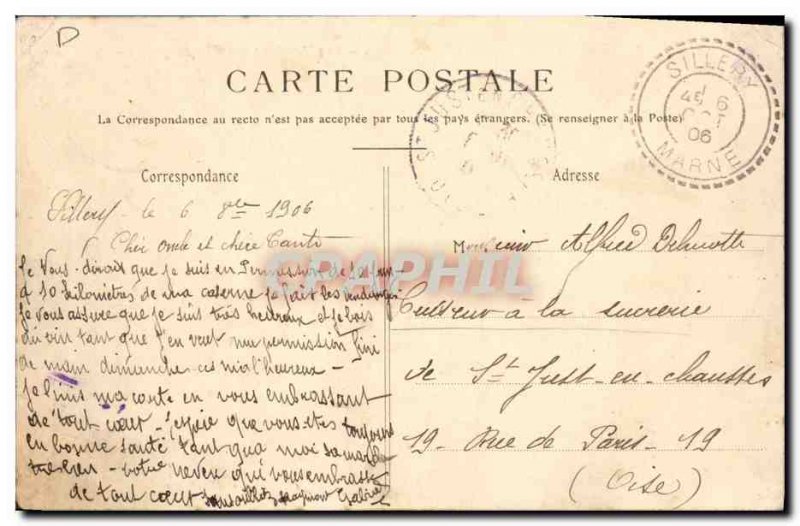 D
CARTE POSTALE
La Correspondance au recto n'est pas acceptée par tous les pays étrangers. (Se renseigner à la Poste)
SILLERY
6
06
MARNE
Correspondance
Adresse
Sillery le 6 8bre 1906
Cher oncle et chère Tante
Je Vous dirait que je suis en Permission de
a 10 kilomètres de ma caserne je fait les vendanges
je vous assure que je suis très heureux et je bois
du vin tant que j'en veut ma permission fini
de main dimanche ces mal'heureux -
je finis ma carte en vous embrassant
de tout cœur - J'espère que vous êtes toujours
en bonne santé tant qua moi sa marche
très bien - votre neveu qui vous embrasse
de tout cœur
Monsieur Alfred
à la sucrerie
de St Just-en-chaussée
19 - Rue de Paris - 19
(Oise)
CPAPHIL